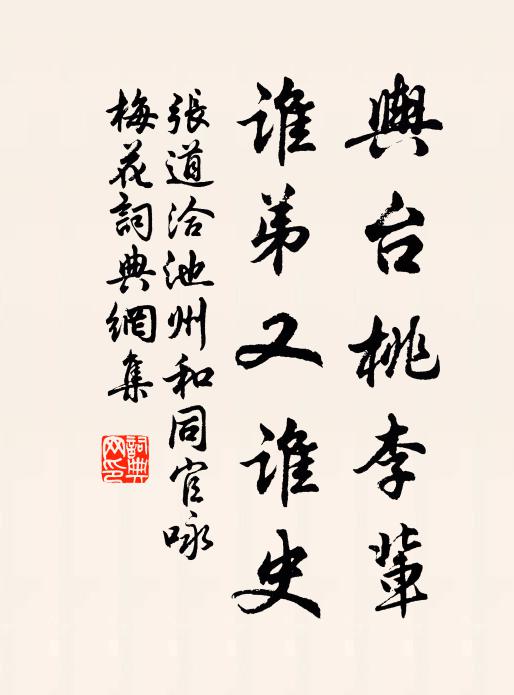 輿台桃李輩
誰弟又誰史
張道洽池州和同官咏
梅花詞典網集
詞典网印